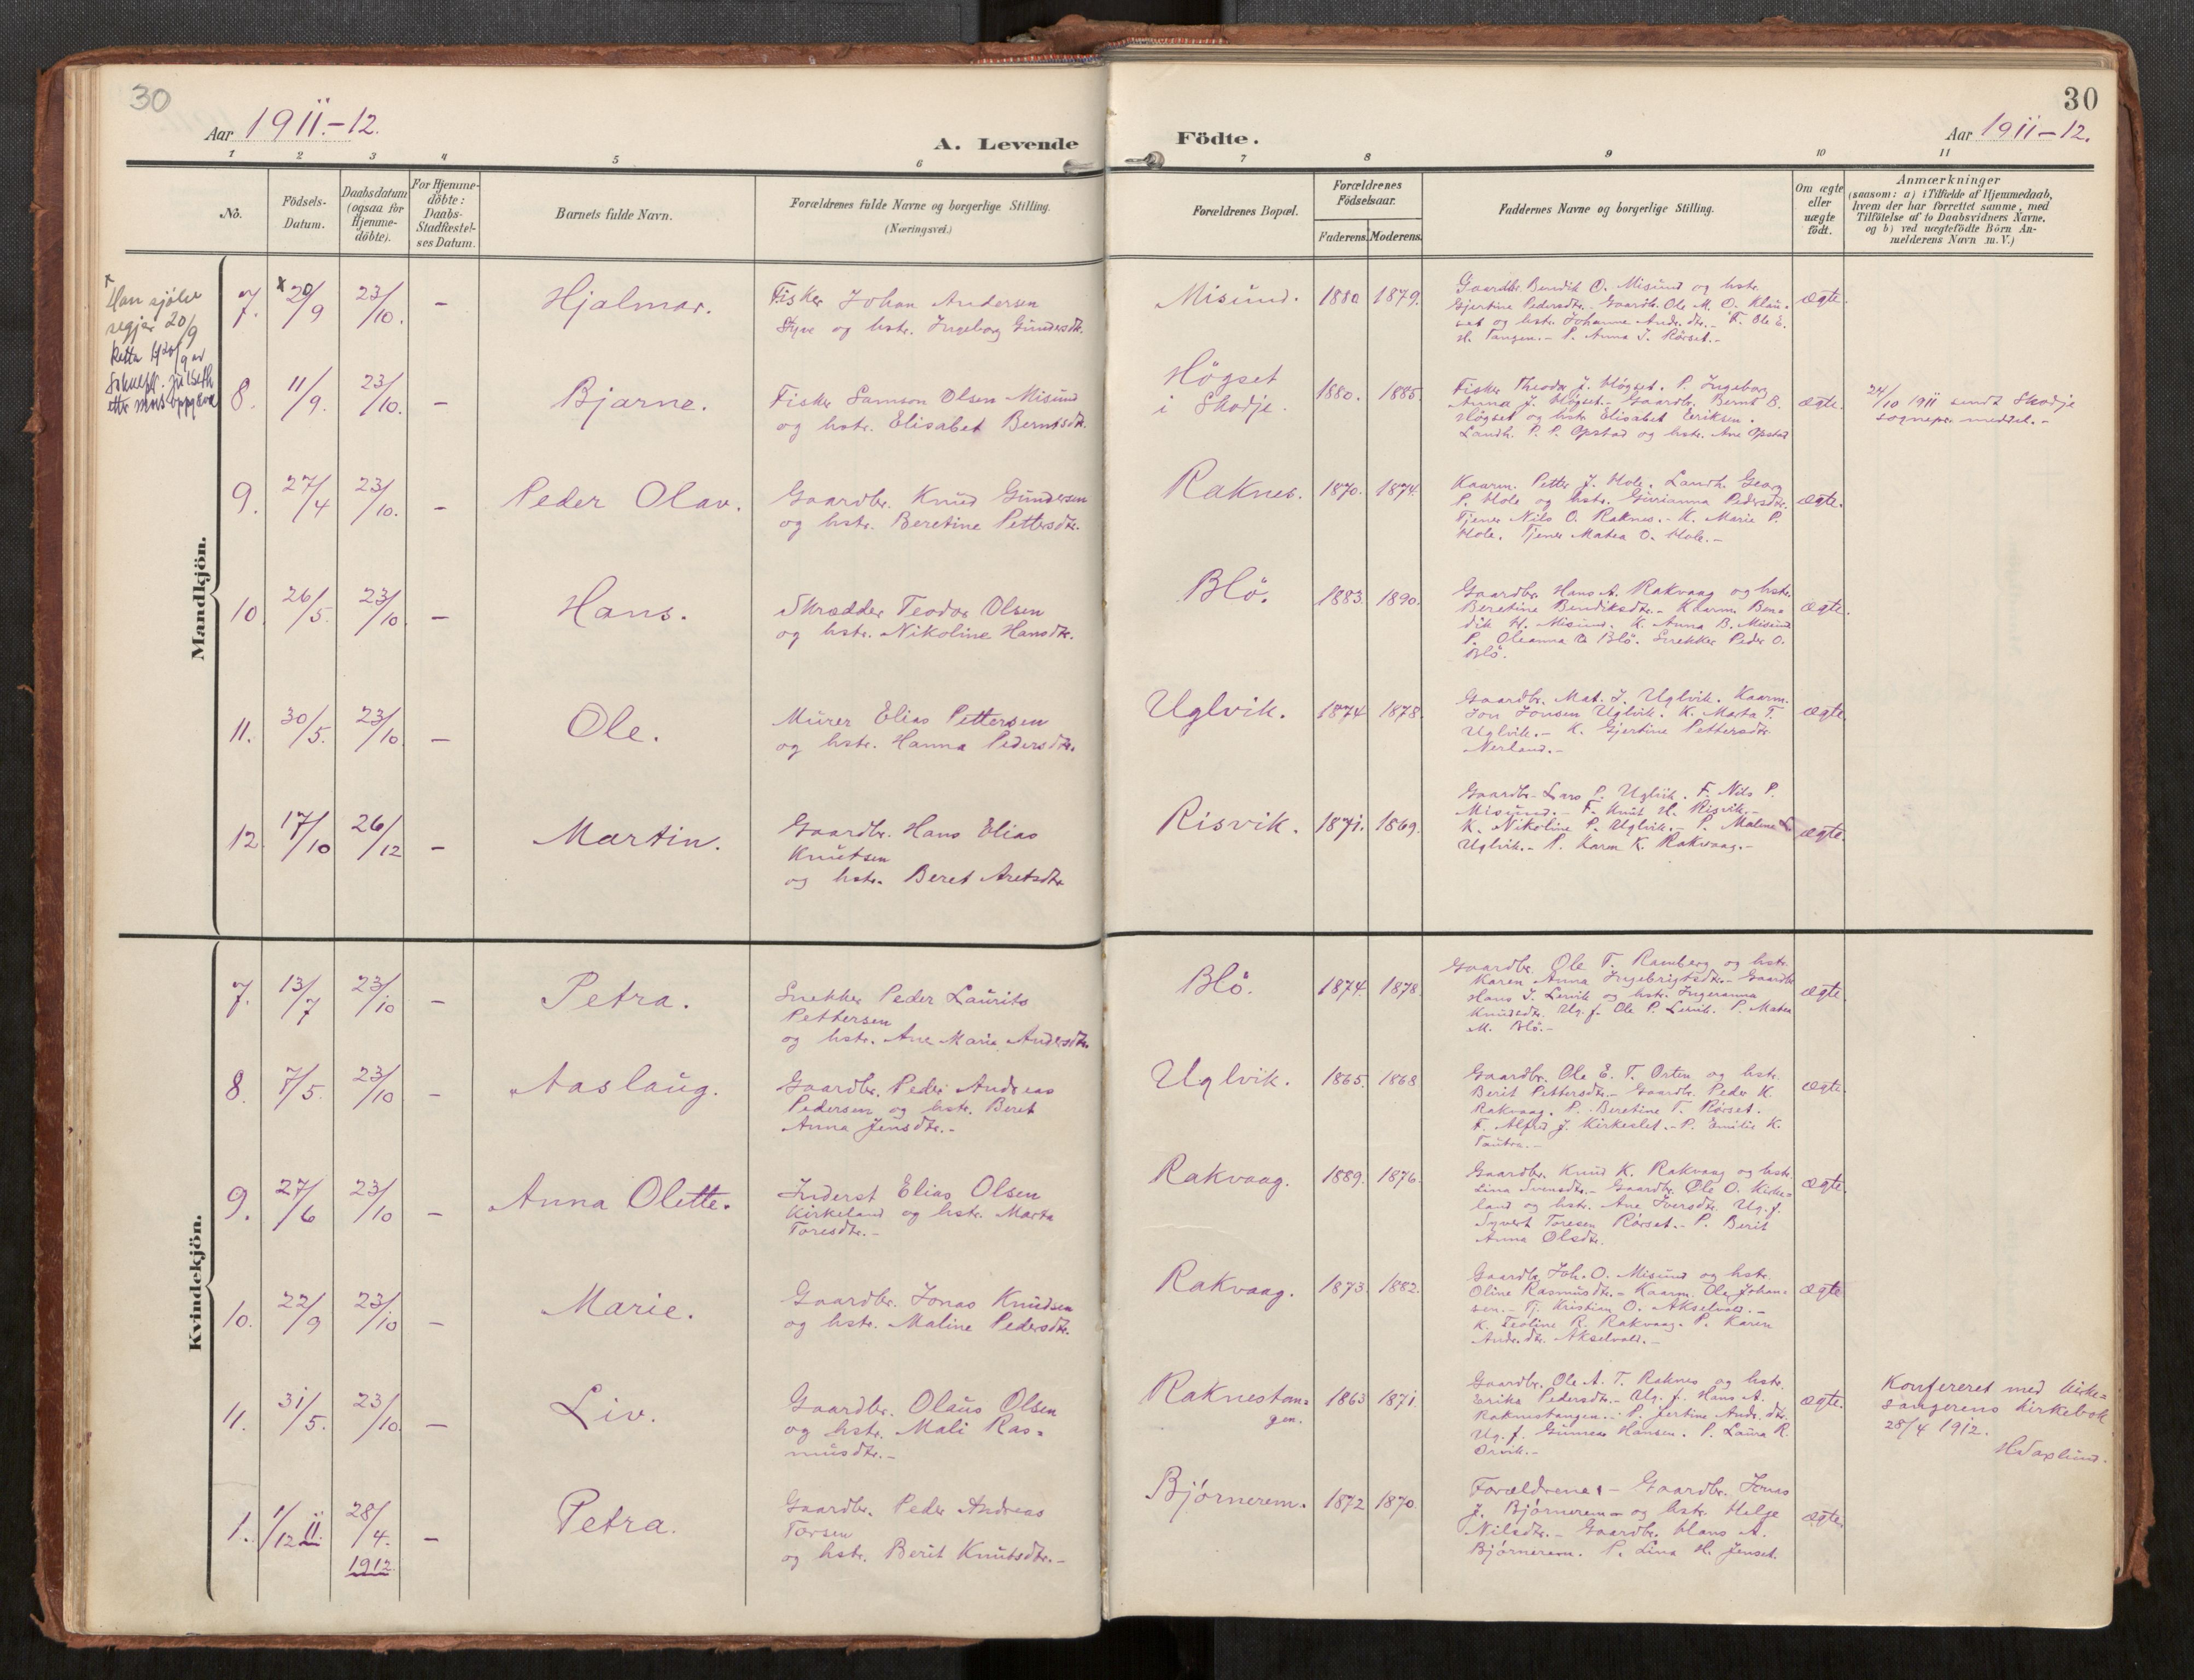 30
Aar 1911.-12.
A. Levende
1 2 3 4 5 6
No.
Födsels-
Datum.
Daabsdatum
(ogsaa for
Hjemme-
döbte).
For Hjemme-
döbte:
Daabs-
Stadfæstel-
ses Datum.
Barnets fulde Navn.
Forældrenes fulde Navne og borgerlige Stilling.
(Næringsvei.)
Mandkjön.
x
Han sjølve
segjer 20/9
Retta t/20/9 av
ettr
7. x 20/9 23/10. - Hjalmar.
Fisker Johan Andersen
og hstr. Ingeborg Gundersdtr.
8. 11/9. 23/10. - Bjarne.
Fisker Samson Olsen Misund
og hstr. Elisabet Berntsdtr.
9. 27/4 23/10. - Peder Olav.
Gaardbr. Knud Gundersen
og hstr. Beretine Pettersdtr.
10. 26/5. 23/10. - Hans.
Skrædder Teodor Olsen
og hstr. Nikoline Hansdtr.
11. 30/5. 23/10. - Ole.
Murer Elias Pettersen
og hstr. Hanna Pedersdtr.
12. 17/10 26/12 - Martin.
Gaardbr. Hans Elias
Knutsen
og hstr. Beret Aretsdtr.
Kvindekjön.
7. 13/7 23/10 - Petra.
Snekker Peder Laurits
Pettersen
og hstr. Ane Marie Andersdtr.
8. 7/5. 23/10 - Aaslaug.
Gaardbr. Peder Andreas
Pedersen og hstr. Beret
Anna Jensdtr.-
9. 27/6 23/10 - Anna Olette.
Inderst Elias Olsen
Kirkeland og hstr. Marta
Toresdtr.-
10. 22/9 23/10 - Marie.
Gaardbr. Jonas Knudsen
og hstr. Maline Pedersdtr.
11. 31/5. 23/10. - Liv.
Gaardbr. Olaus Olsen
og hstr. Mali Ras=
musdtr.-
1. 1/12 11. 28/4. 1912. - Petra.
Gaardbr. Peder Andreas
Torsen
og hstr. Berit Knutsdtr.-
30
Födte.
Aar 1911-12.
7 8 9 10 11
Forældrenes Bopæl.
Forældrenes
Födselsaar.
Faderens. Moderens.
Faddernes Navne og borgerlige Stilling.
Om ægte
eller
uægte
födt.
Anmærkninger
(saasom: a) i Tilfælde af Hjemmedaab,
hvem der har forrettet samme, med
Tilföielse af to Daabsvidners Navne,
og b) ved uægtefödte Börn An-
melderens Navn m. V.)
Misund. 1880 1879.
Gaardbr. Bendik O. Misund og hstr.
Gjertine Pedersdtr. Gaardbr. Ole M. O. Klau=
set og hstr. Johanne Andr.dtr.- F. Ole E.
H. Tangen.- P. Anna I. Rörset.-
ægte.
Högset
i Skodje. 1880. 1885.
Fisker Theodor J. Högset. P. Ingeborg
Anna J. Högset.- Gaardbr. Bernt B.
Högset og hstr. Elisabet Eriksen.
Landh. P. P. Opstad og hstr. Ane Opstad
ægte.
24/10 1911 sendt Skodje
sognepr. meddel.-
Raknes. 1870. 1874.
Kaarm. Petter J. Hole. Landh. Georg
P. Hole og hstr. Gurianna Pedersdtr.
Tjener Nils O. Raknes.- K. Marie P.
Hole. Tjener Matea O. Hole.-
ægte.
Blö. 1883. 1890.
Gaardbr. Hans A. Rakvaag og hstr.
Beretine Bendiksdtr.- Kaarm. Ben=
dik H. Misund. K. Anna B. Misund
P. Oleanna O. Blö. Snekker Peder O.
Blö.
ægte.
Uglvik. 1874 1878.
Gaardbr. Mat. J. Uglvik. Kaarm.
Jon Jonsen Uglvik. K. Mata T.
Uglvik.- K. Gjertine Pettersdtr.
Nerland.-
ægte.
Risvik. 1871. 1869.
Gaardbr. Lars P. Uglvik. F. Nils P.
Misund.- F. Knut H. Risvik.-
K. Nikoline P. Uglvik.- P. Maline L.
Uglvik.- P. Karen K. Rakvaag.-
ægte.
Blö. 1874. 1878.
Gaardbr. Ole T. Ramberg og hstr.
Karen Anna Ingebrigtsdtr.- Gaardbr.
Hans J. Lervik og hstr. Ingeranna
Knudsdtr. Ug.f. Ole P. Lervik. P. Matea
M. Blö.-
ægte.
Uglvik. 1865. 1868
Gaardbr. Ole E. T. Orten og hstr.
Berit Pettersdtr.- Gaardbr. Peder K.
Rakvaag. P. Beretine T. Rörset.
F. Alfred J. Kirkeslet.- P. Emilie K.
Tautra.-
ægte.
Rakvaag. 1889. 1876.
Gaardbr. Knud K. Rakvaag og hstr.
Lina Svensdtr.- Gaardbr. Ole O. Kirke=
land og hstr. Ane Iversdtr. Ug.f.
Syvert Toresen Rörset.- P. Berit
Anna Olsdtr.
ægte.
Rakvaag. 1873. 1882.
Gaardbr. Joh. O. Misund og hstr.
Oline Rasmusdtr.- Kaarm. Ole Johan=
sen.- Tj. Kristian O. Akselvold.-
K. Teoline R. Rakvaag. P. Karen
Andr.dtr. Akselvold.-
ægte
Raknestan=
gen. 1863 1871.
Gaardbr. Ole A. T. Raknes og hstr.
Erika Pedersdtr.- Ug. f. Hans A.
Raknestangen.- P. Jertine Andr.dtr.
Ug. f. Gunnar Hansen. P. Laura R.
Orvik.-
ægte.
Konfereret med kirke=
sangerens kirkebok
28/4 1912.
Bjørnerem. 1872 1870.
Forældrene.- Gaardbr. Jonas
J. Bjørnerem og hstr. Helge
Nilsdtr.- Gaardbr. Hans A.
Bjørnerem. P. Lina H. Jenset.
ægte